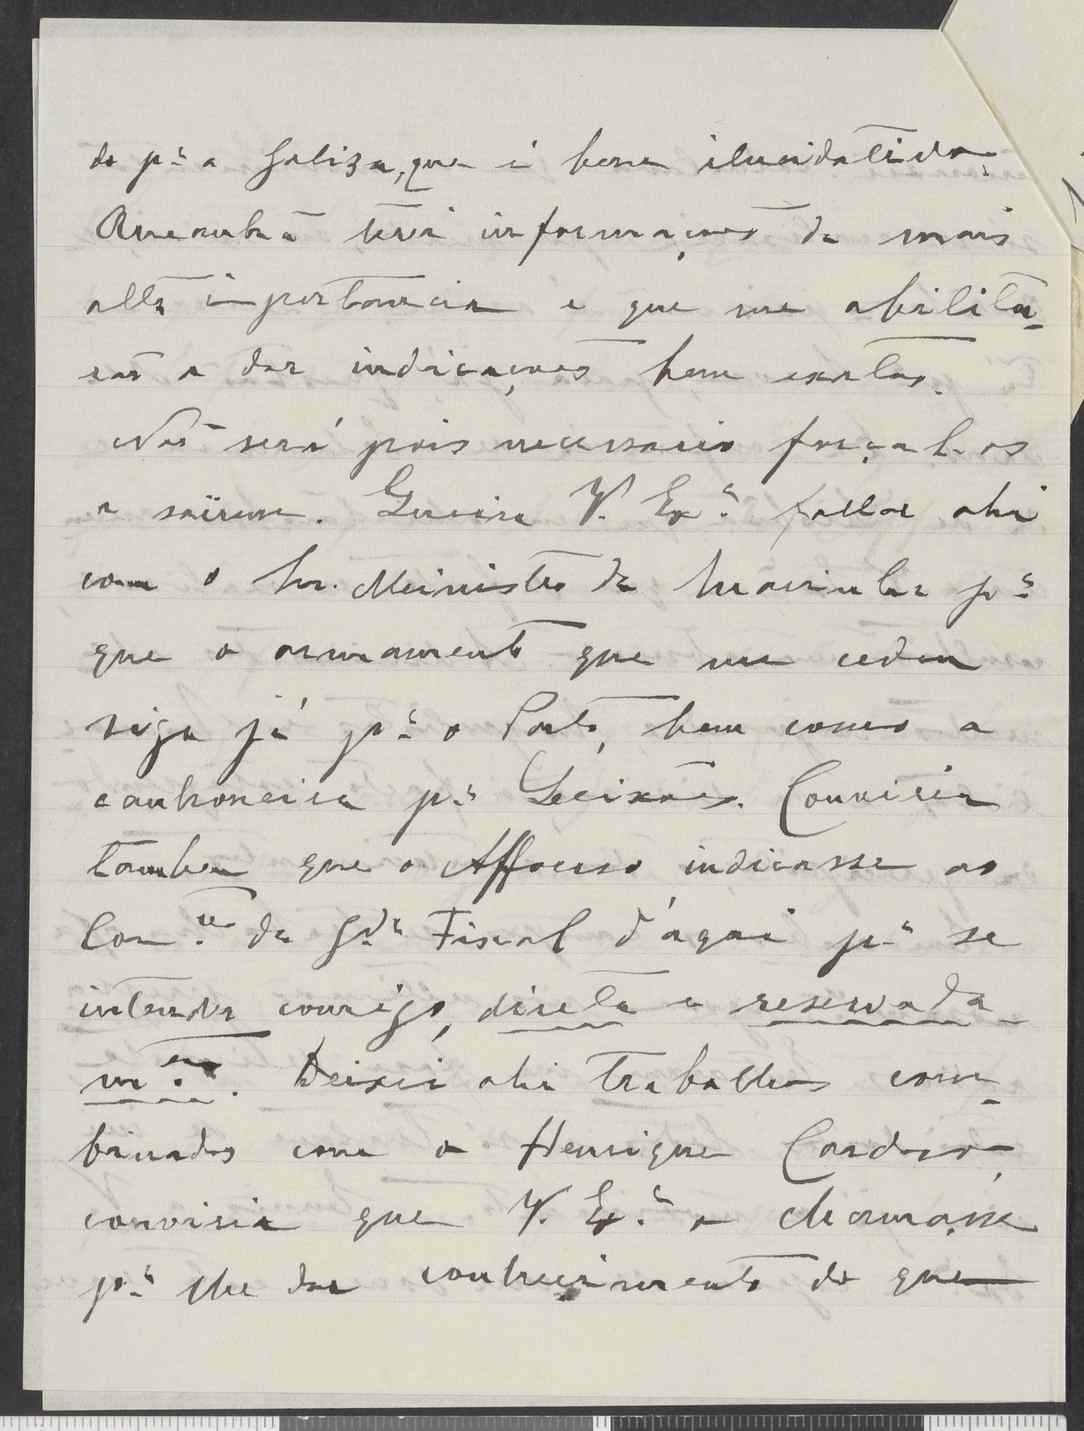 do p.ª a Galiza, que é bem ilucidativo.
Amanhã terei informações da mais
alta importancia e que me abilita-
rão a dar indicações bem exatas.
Não será pois necessario forçal-os
a saïrem. Queira V. Ex.ª fallar ahi
com o Snr. Ministro da Marinha p.ª
que o armamento que me cedem
siga já p.ª o Porto, bem como a
canhoneira p.ª Leixões. Conviria
tambem que o Affonso indicasse ao
Com.te da G.da Fiscal d'aqui p.ª se
intender comigo, direta e reservada-
m.te. Deixei ahi trabalhos com-
binados com o Henrique Cardoso,
conviria que V. Ex.ª o chamasse
p.ª lhe dar conhecimento do que